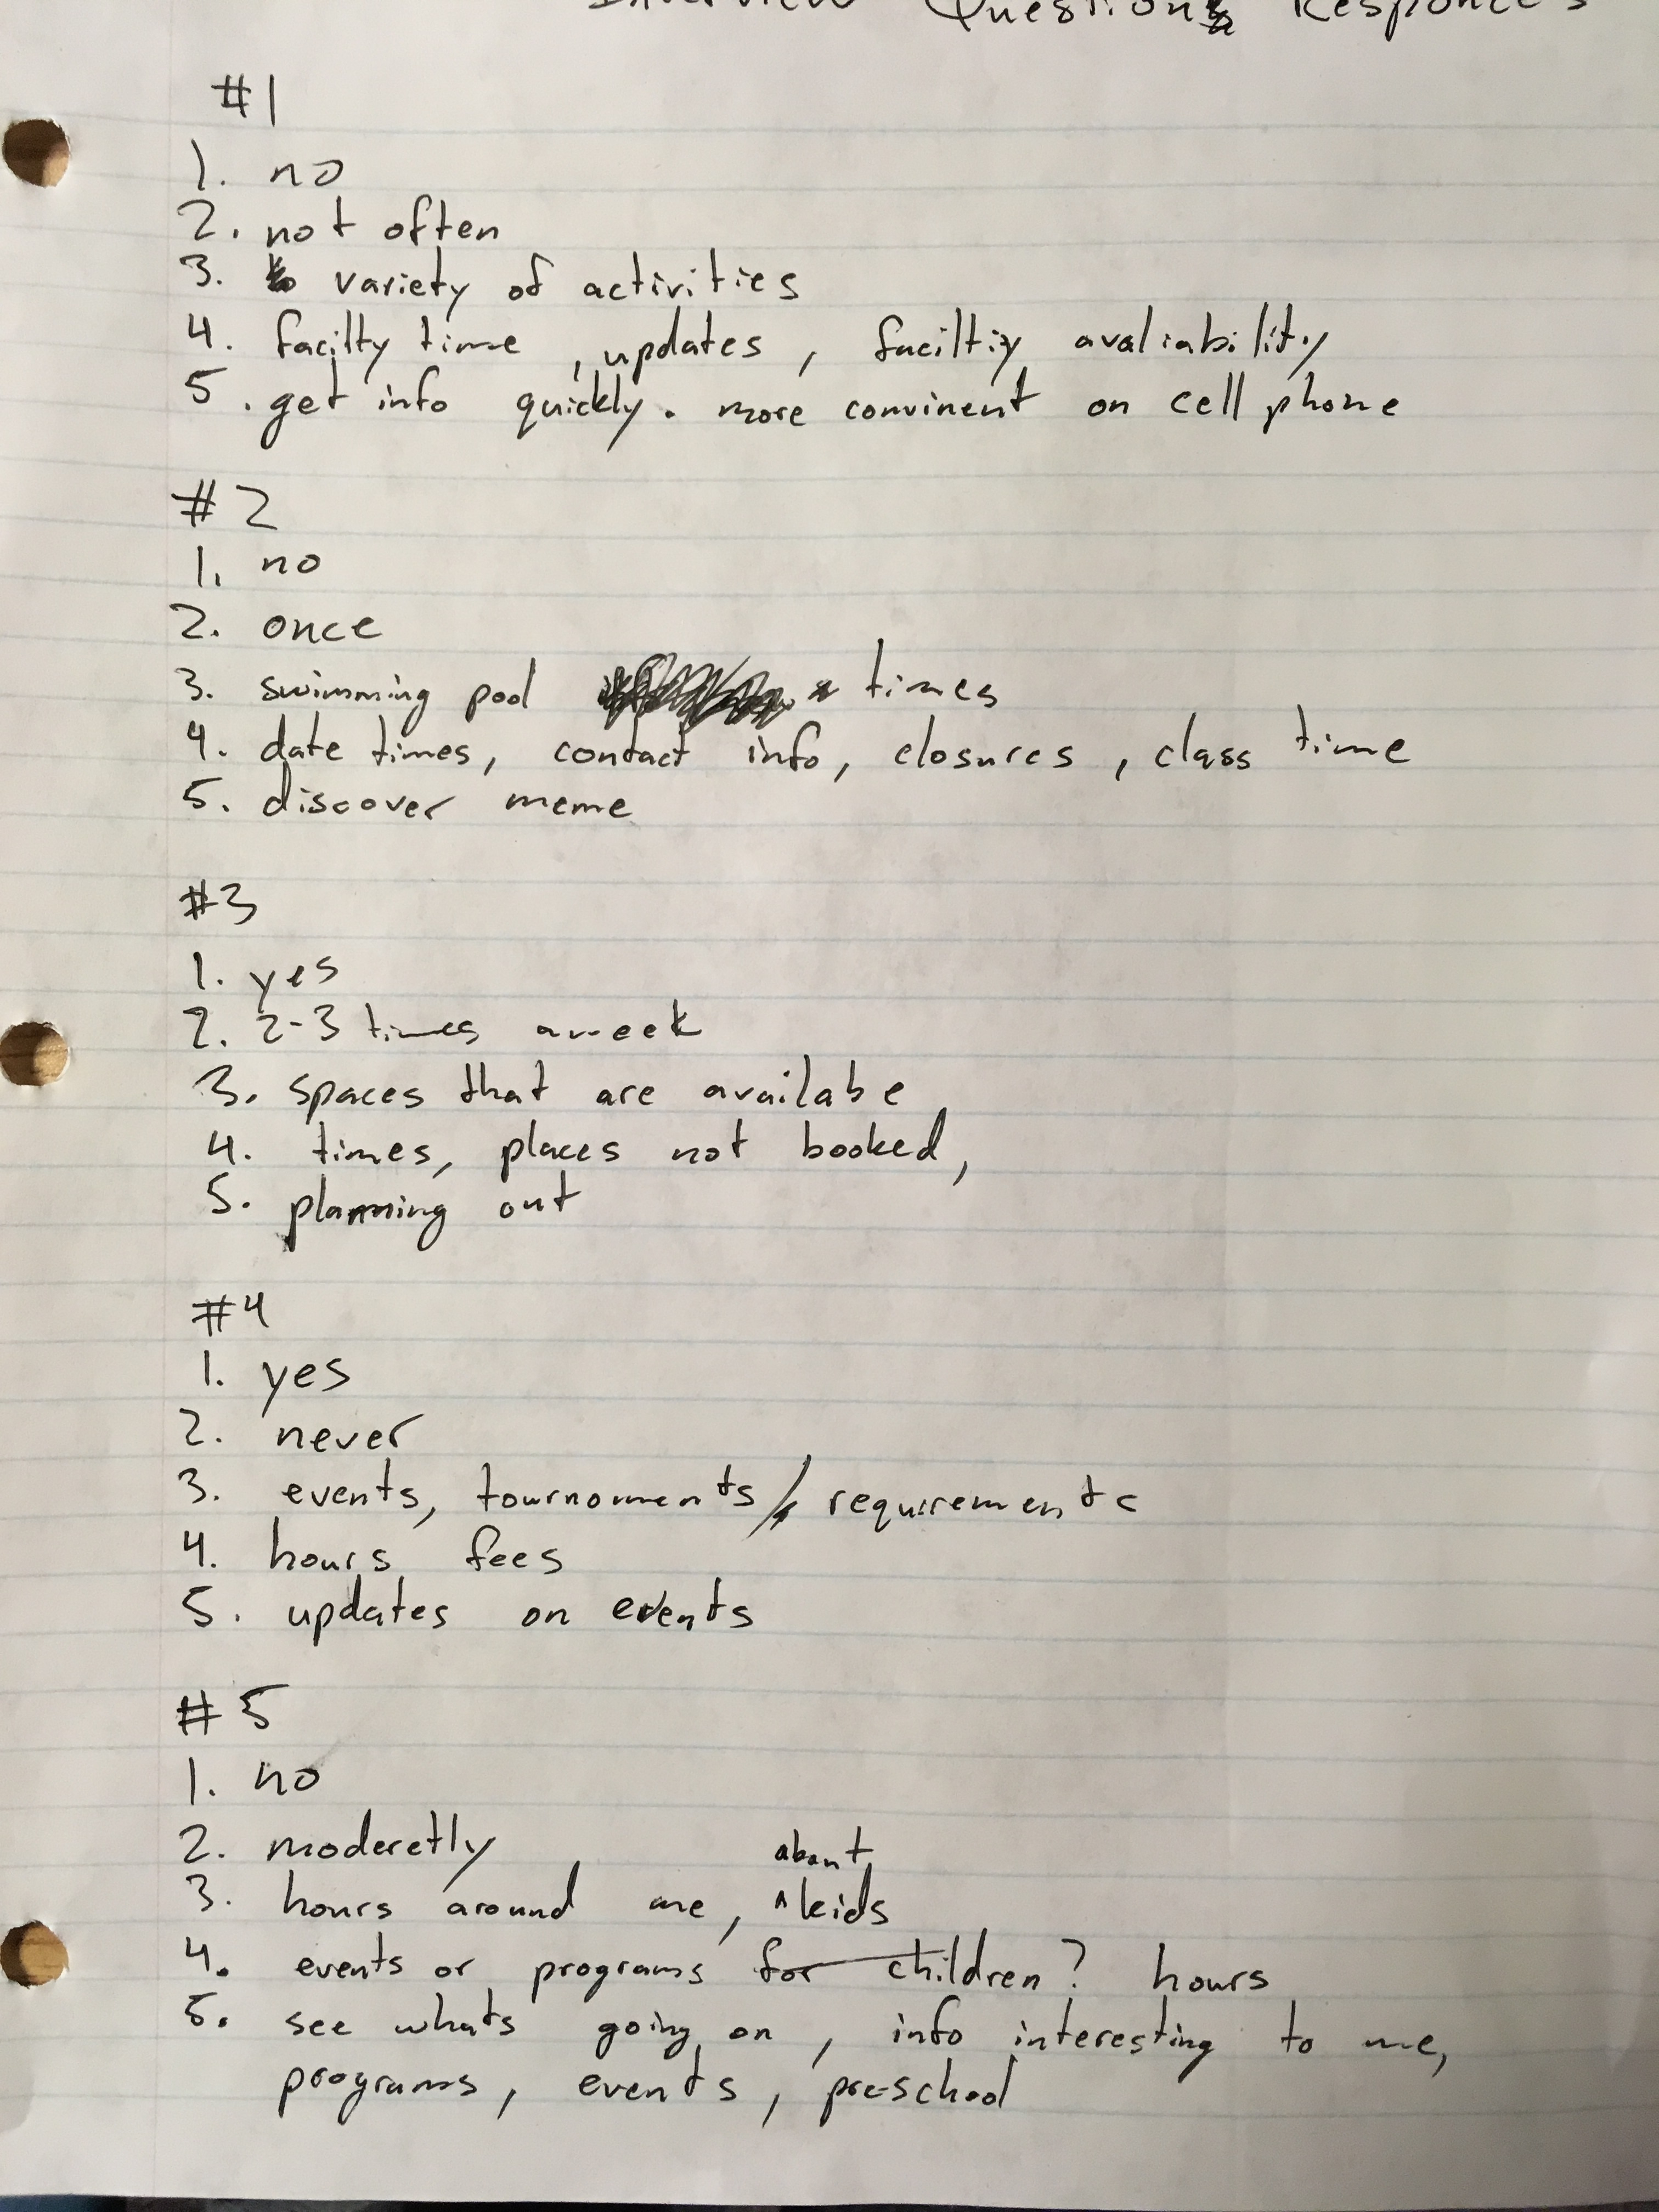 Interview Questions Responces
#1
1. no
2. not often
3. variety of activities
4. facilty time , updates , faciltiy avaliability
5. get info quickly. more convinent on cell phone
#2
1. no
2. once
3. swimming pool times
4. date times, contact info, closures , class time
5. discover meme
#3
1. yes
2. 2-3 times aweek
3. spaces that are availabe
4. times, places not booked,
5. planning out
#4
1. yes
2. never
3. events, tournoments / requirements
4. hours, fees
5. updates on events
#5
1. no
2. moderetly
3. hours around me, about kids
4. events or programs for children? hours
5. see whats going on , info interesting to me,
programs, events, pre-school